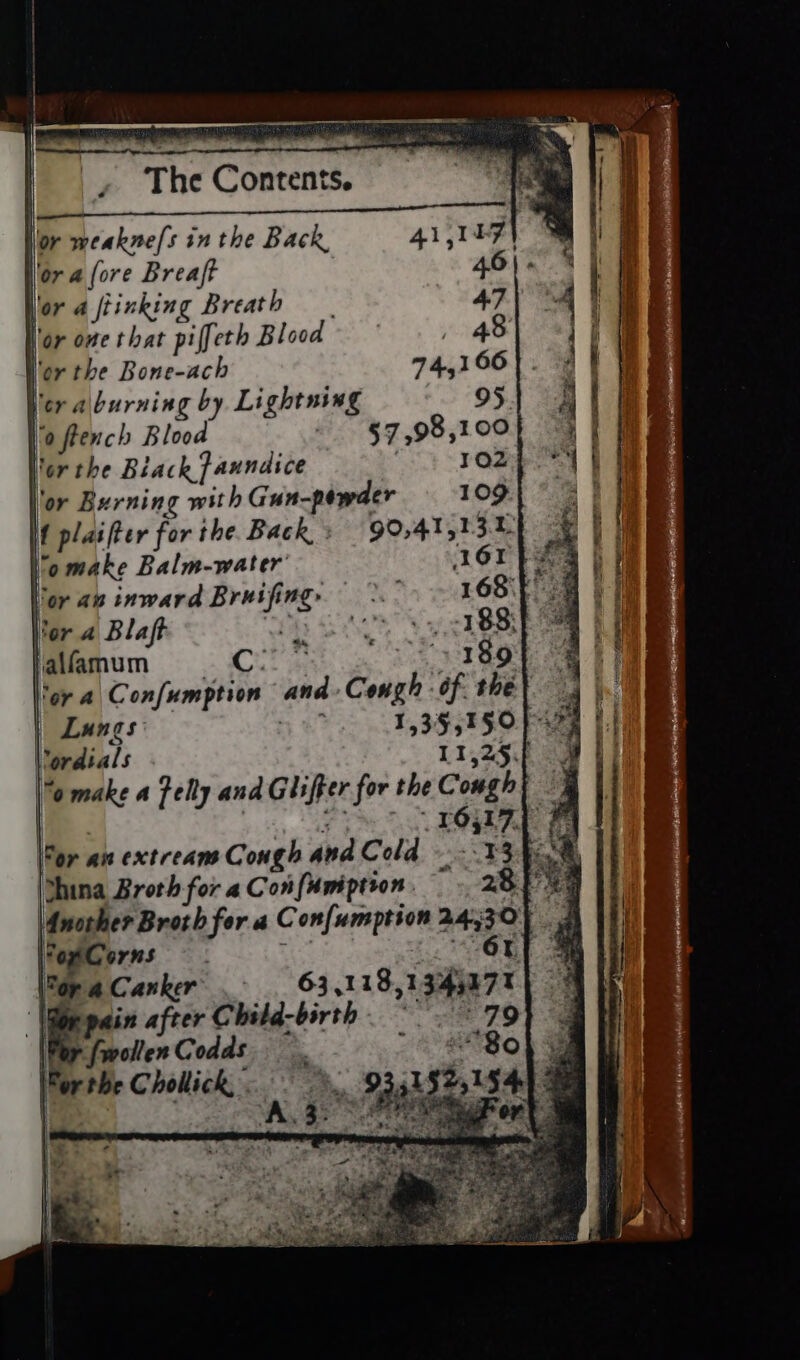 The Contents.
or weakneſs in the Back, 41,117
or a ſore Breaſt 46
or a ſtinking Breath 47
or one that piſſeth Blood 48
or the Bone-ach 74,166
or a burning by Lightning 95
o ſtench Blood 57,98,100
or the Black Jaundice 102
or Burning with Gun-powder 109
plaiſter for the Back, 90,41,131
o make Balm-water 161
or an inward Bruiſing. 168
or a Blaſt 188
alſamum C. 189
or a Conſumption and Cough of the
Lungs 1,35,150
ordials 11,25.
o make a Jelly and Gliſter for the Cough
16,17.
For an extream Cough and Cold 13
China Broth for a Conſumption. 28
Another Broth for a Conſumption 24,30
For Corns 61
For a Canker 63,118,134,171
For pain after Child-birth 79
For ſwollen Codds 80
For the Chollick, 93,152,154
A 3 For